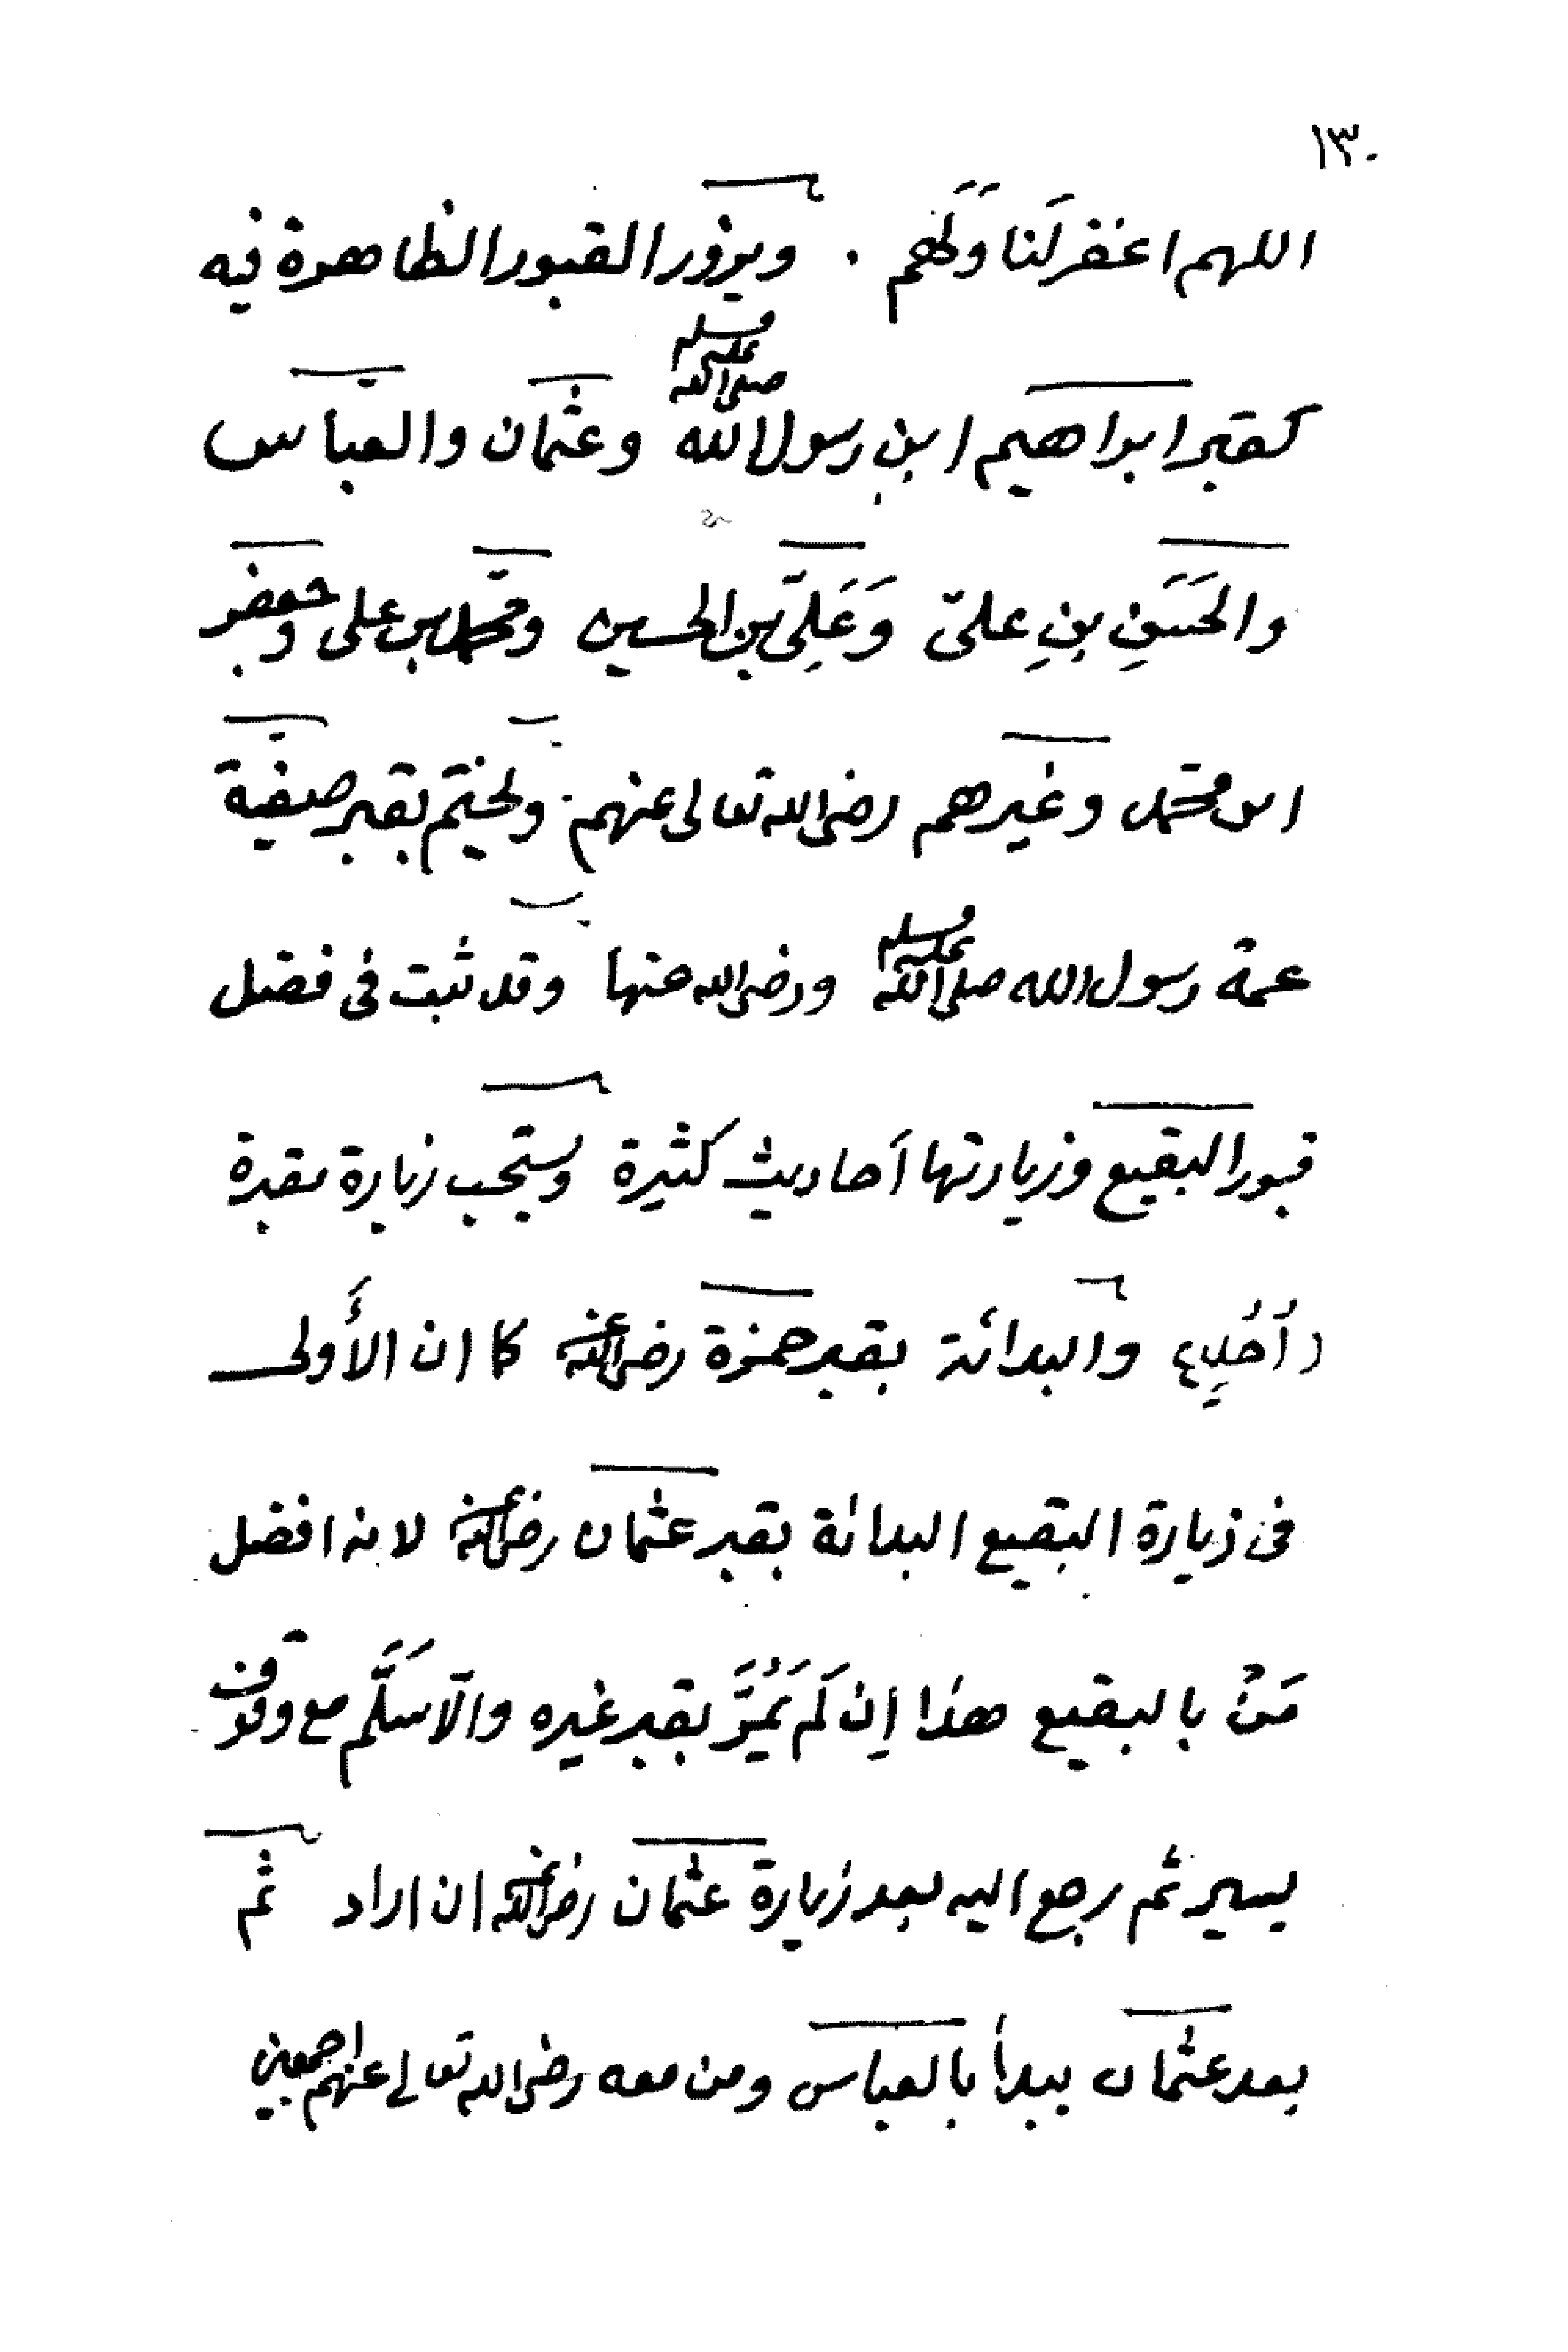 ١٣٠
اللهم اغفر لَنا وَلَهم . ويزور القبور الظاهرة فيه
كقبر ابراهيم ابنِ رسول الله صلى الله عليه وسلم وعثمان والعباس
والحَسَنِ بنِ علىّ وَعَلِىّ بن الحسين ومحمّد بن على وجعفر
ابن محمّد وغيرهم رضى الله تعالى عنهم . ويختم بقبر صفيّة
عمة رسول الله صلى الله عليه وسلم ورضى الله عنها وقد ثبت فى فضل
قبور البقيع وزيارتها أحاديث كثيرة ويستحب زيارة مقبرة
(أُحُدٍ) والبدائة بقبر حمزة رضى الله عنه كما ان الأَولى
فى زيارة البقيع البدائة بقبر عثمان رضى الله عنه لانه افضل
مَنْ بالبقيع هذا إن لَم يَمُرَّ بقبر غيره والّا سَلَّم مع وقوف
يسير ثم رجع اليه بعد زيارة عثمان رضى الله عنه ان اراد ثم
بعد عثمان يبدأ بالعباس ومن معه رضى الله تعالى عنهم اجمعين